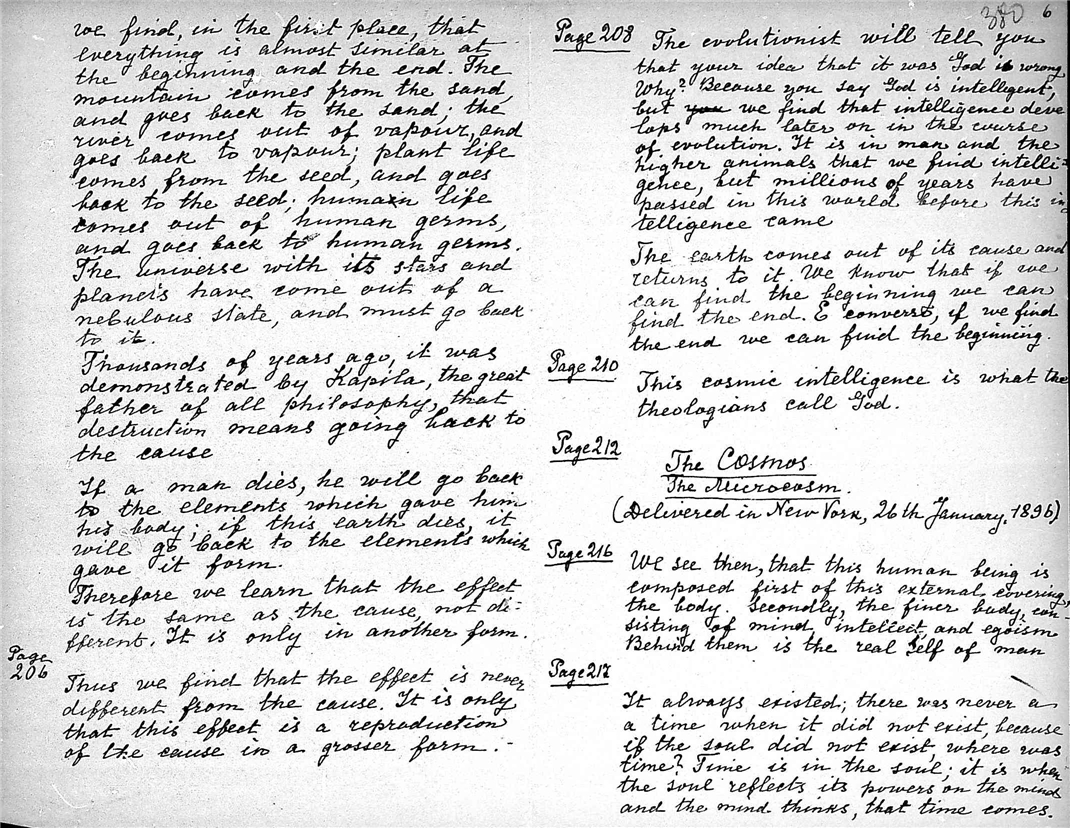 we find, in the first place, that
everything is almost similar at
the beginning and the end. The
mountain comes from the sand,
and goes back to the sand; the
river comes out of vapour, and
goes back to vapour; plant life
comes, from the seed, and goes
back to the seed; human life
comes out of human germs,
and goes back to human germs.
The universe with its stars and
planets have come out of a
nebulous state, and must go back
to it.
Thousands of years ago, it was
demonstrated by Kapila, the great
father of all philosophy, that
destruction means going back to
the cause
If a man dies, he will go back
to the elements which gave him
his body; if this earth dies, it
will go back to the elements which
gave it form.
Therefore we learn that the effect
is the same as the cause, not di-
fferent. It is only in another form.
Page
206
Thus we find that the effect is never
different from the cause. It is only
that this effect is a reproduction
of the cause in a grosser form :-
380 6
Page 208
The evolutionist will tell you
that your idea that it was God is wrong
Why? Because you say God is intelligent,
but you we find that intelligence deve
lops much later on in the course
of evolution. It is in man and the
higher animals that we find intelli-
gence, but millions of years have
passed in this world before this in-
telligence came
The earth comes out of its cause and
returns to it. We know that if we
can find the beginning we can
find the end. E converso, if we find
the end we can find the beginning.
Page 210
This cosmic intelligence is what the
theologians call God.
Page 212
The Cosmos
The Microcosm.
(Delivered in New York, 26th January, 1896)
Page 216
We see then, that this human being is
composed first of this external covering,
the body. Secondly, the finer body, con-
sisting of mind intellect, and egoism
Behind them is the real Self of man
Page 217
It always existed; there was never a
a time when it did not exist, because
if the soul did not exist, where was
time? Time is in the soul; it is when
the soul reflects its powers on the mind
and the mind thinks, that time comes.